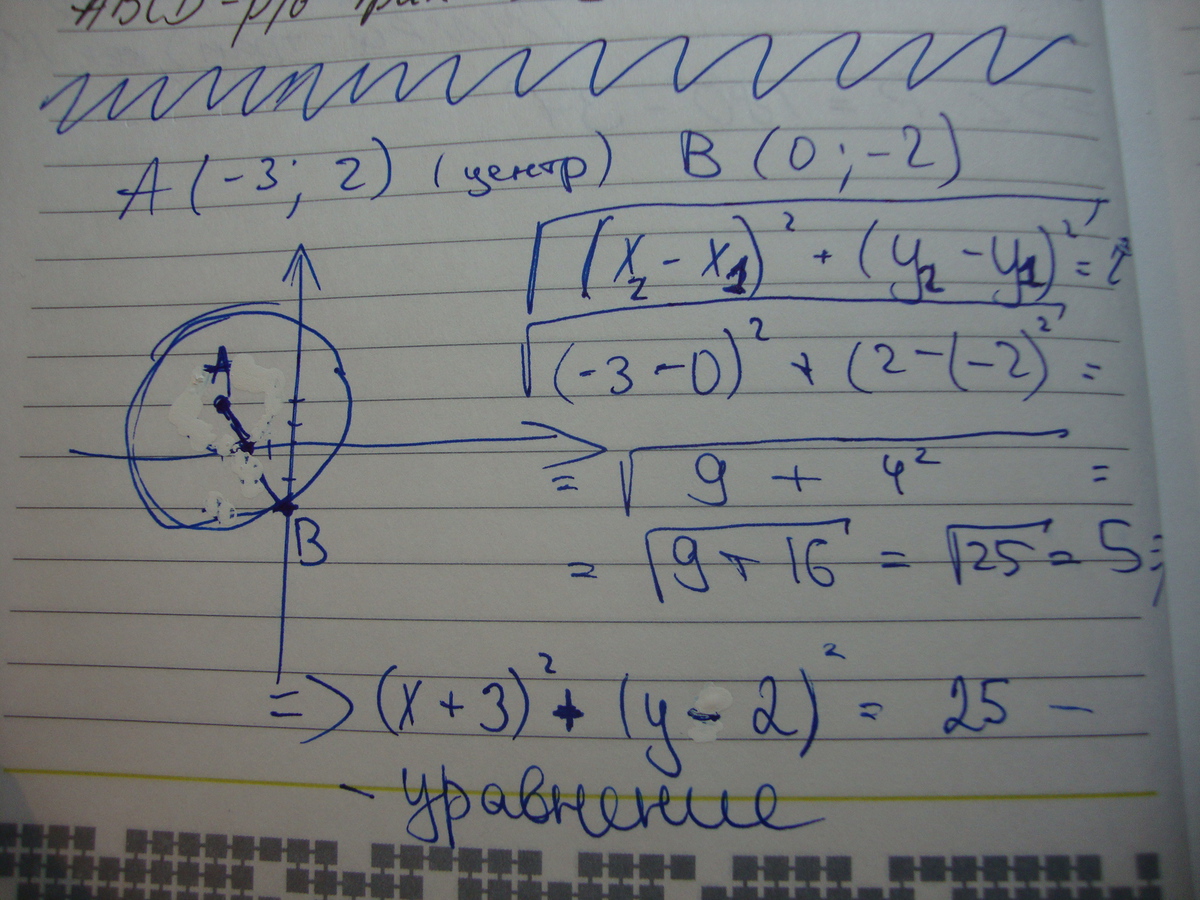 ABCD - р/б
A (-3; 2) (центр) B (0; -2)
√((x₂ - x₁)² + (y₂ - y₁)²) =
√((-3 - 0)² + (2 - (-2)²) =
A
= √(9 + 4²) =
B
= √(9 + 16) = √25 = 5 =
=> (x + 3)² + (y - 2)² = 25 -
- уравнение